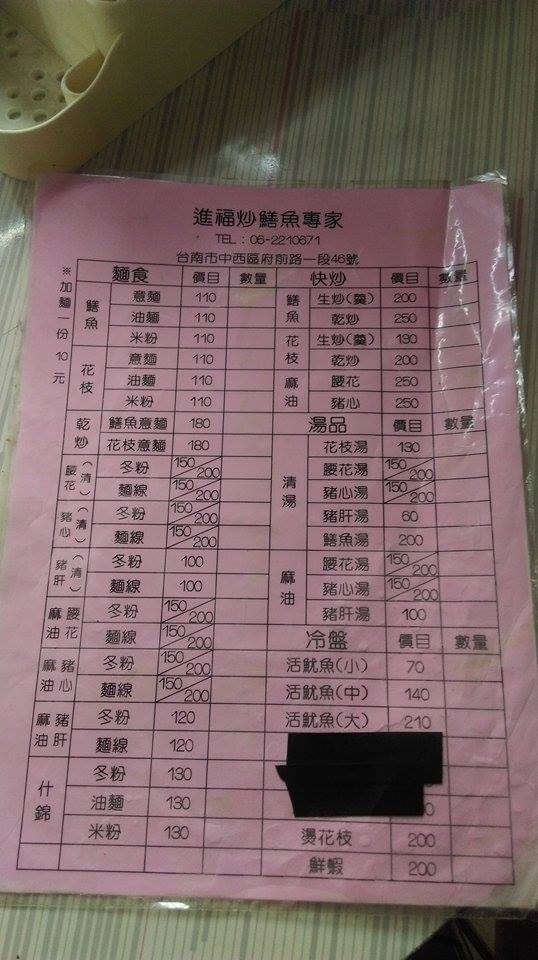 進福炒鱔魚專家
TEL：06-2210671
台南市中西區府前路一段46號
※加麵一份 10元
麵食 價目 數量
鱔魚 意麵 110
油麵 110
米粉 110
花枝 意麵 110
油麵 110
米粉 110
乾炒 鱔魚意麵 180
花枝意麵 180
腰花（清） 冬粉 150/200
麵線 150/200
豬心（清） 冬粉 150/200
麵線 150/200
豬肝（清） 冬粉 100
麵線 100
麻油腰花 冬粉 150/200
麵線 150/200
麻油豬心 冬粉 150/200
麵線 150/200
麻油豬肝 冬粉 120
麵線 120
什錦 冬粉 130
油麵 130
米粉 130
快炒 價目 數量
鱔魚 生炒(羹) 200
乾炒 250
花枝 生炒(羹) 130
乾炒 200
麻油 腰花 250
豬心 250
湯品 價目 數量
清湯 花枝湯 130
腰花湯 150/200
豬心湯 150/200
豬肝湯 60
鱔魚湯 200
麻油 腰花湯 150/200
豬心湯 150/200
豬肝湯 100
冷盤 價目 數量
活魷魚(小) 70
活魷魚(中) 140
活魷魚(大) 210
燙花枝 200
鮮蝦 200